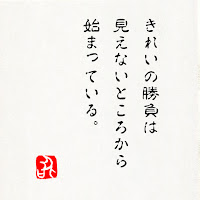 きれいの勝負は
見えないところから
始まっている。